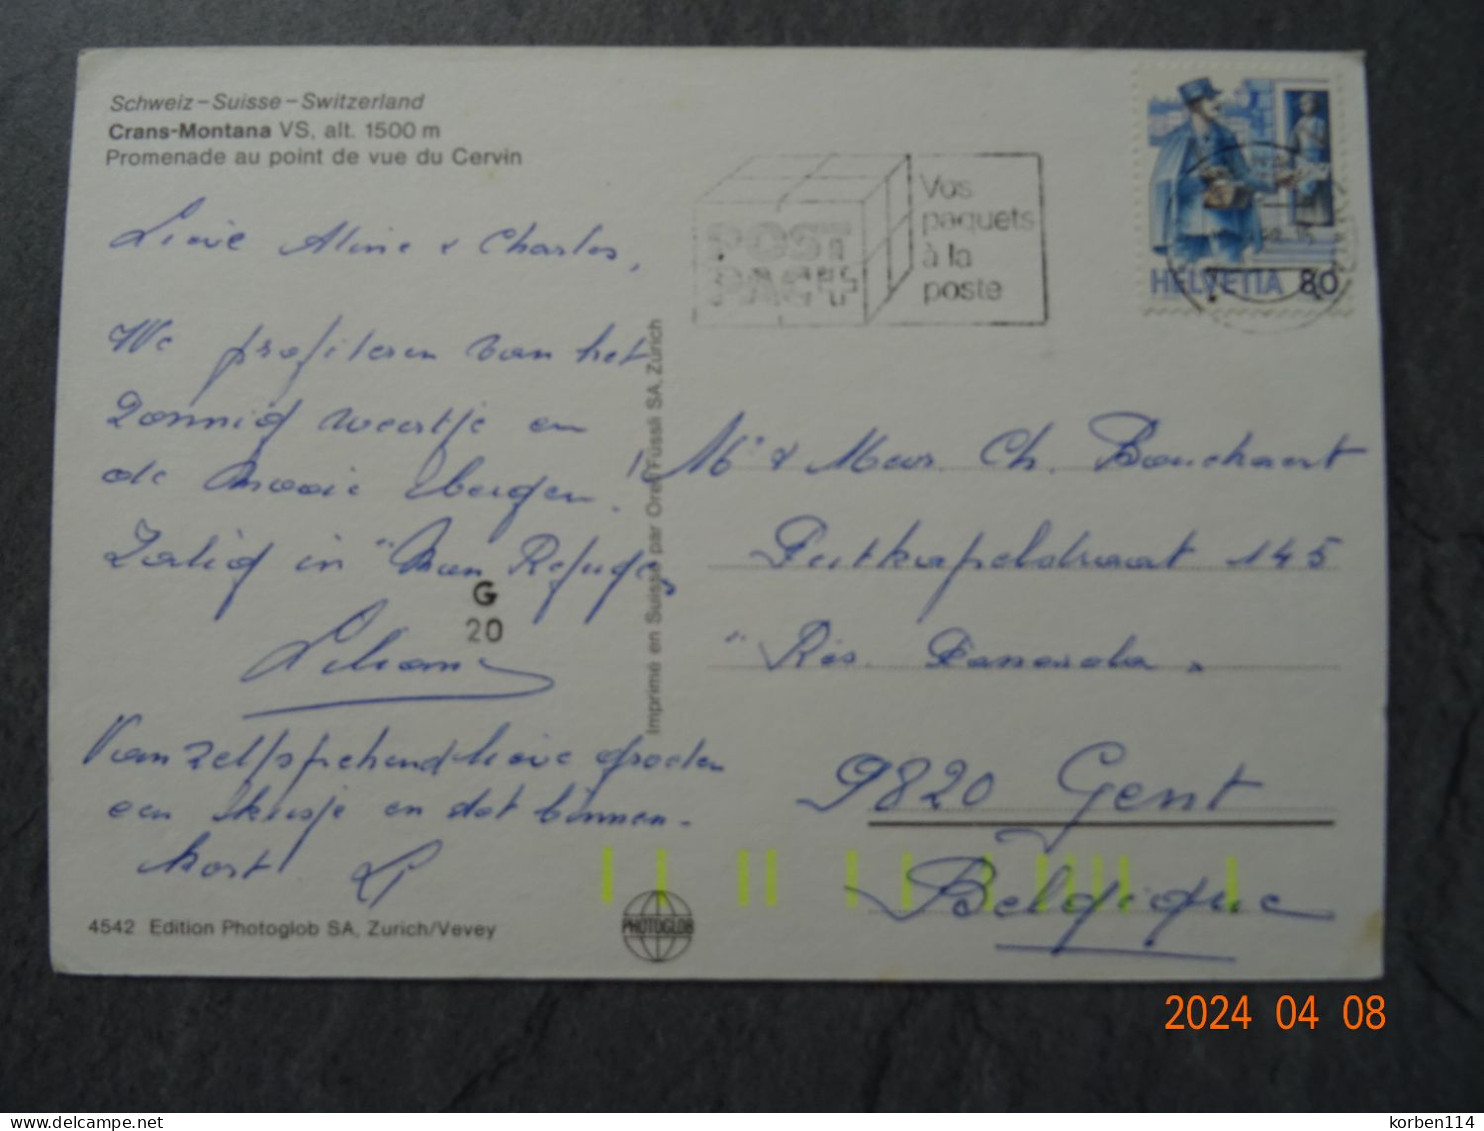 Schweiz – Suisse – Switzerland
Crans-Montana VS, alt. 1500 m
Promenade au point de vue du Cervin
Lieve Aline & Charles,
We profiteren van het
zonnig weertje en
de mooie bergen!
Zalig in "Mon Refuge"
G
20
Liliane
Vanzelfsprekend lieve groeten
een kusje en dat binnen-
kort Li
4542 Edition Photoglob SA, Zurich/Vevey
PHOTOGLOB
Imprimé en Suisse par Orell Füssli SA, Zürich
POST
PAC
Vos
paquets
à la
poste
HELVETIA 80
Mr & Mevr. Ch. Bouckaert
145
" Res.
9820 Gent
Belgique
2024 04 08
korben114